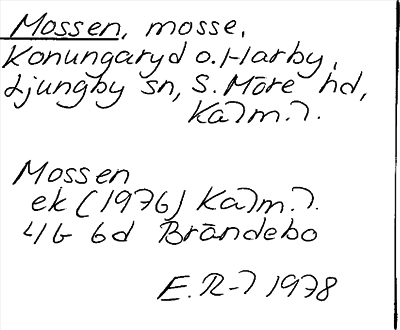 Mossen, mosse,
Konungaryd o. Harby,
Ljungby sn, S. Möre hd,
Kalm. l.
Mossen
ek (1976) Kalm. l.
4G 6d Brändebo
E. R-l 1978